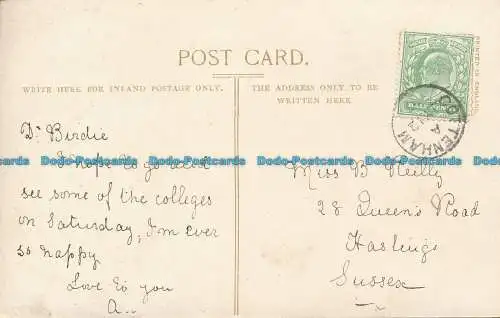 POST CARD.
WRITE HERE FOR INLAND POSTAGE ONLY.
THE ADDRESS ONLY TO BE
WRITTEN HERE
PRINTED IN ENGLAND.
HALFPENNY
COTTENHAM
A
Dr Birdie
I hope to go
see some of the colleges
on Saturday, I'm ever
so happy
Love to you
A..
Miss B Reilly
28 Queen's Road
Hastings
Sussex
Dodo-Postcards Dodo-Postcards Dodo-Postcards Dodo-Postcards Dodo-Postcards